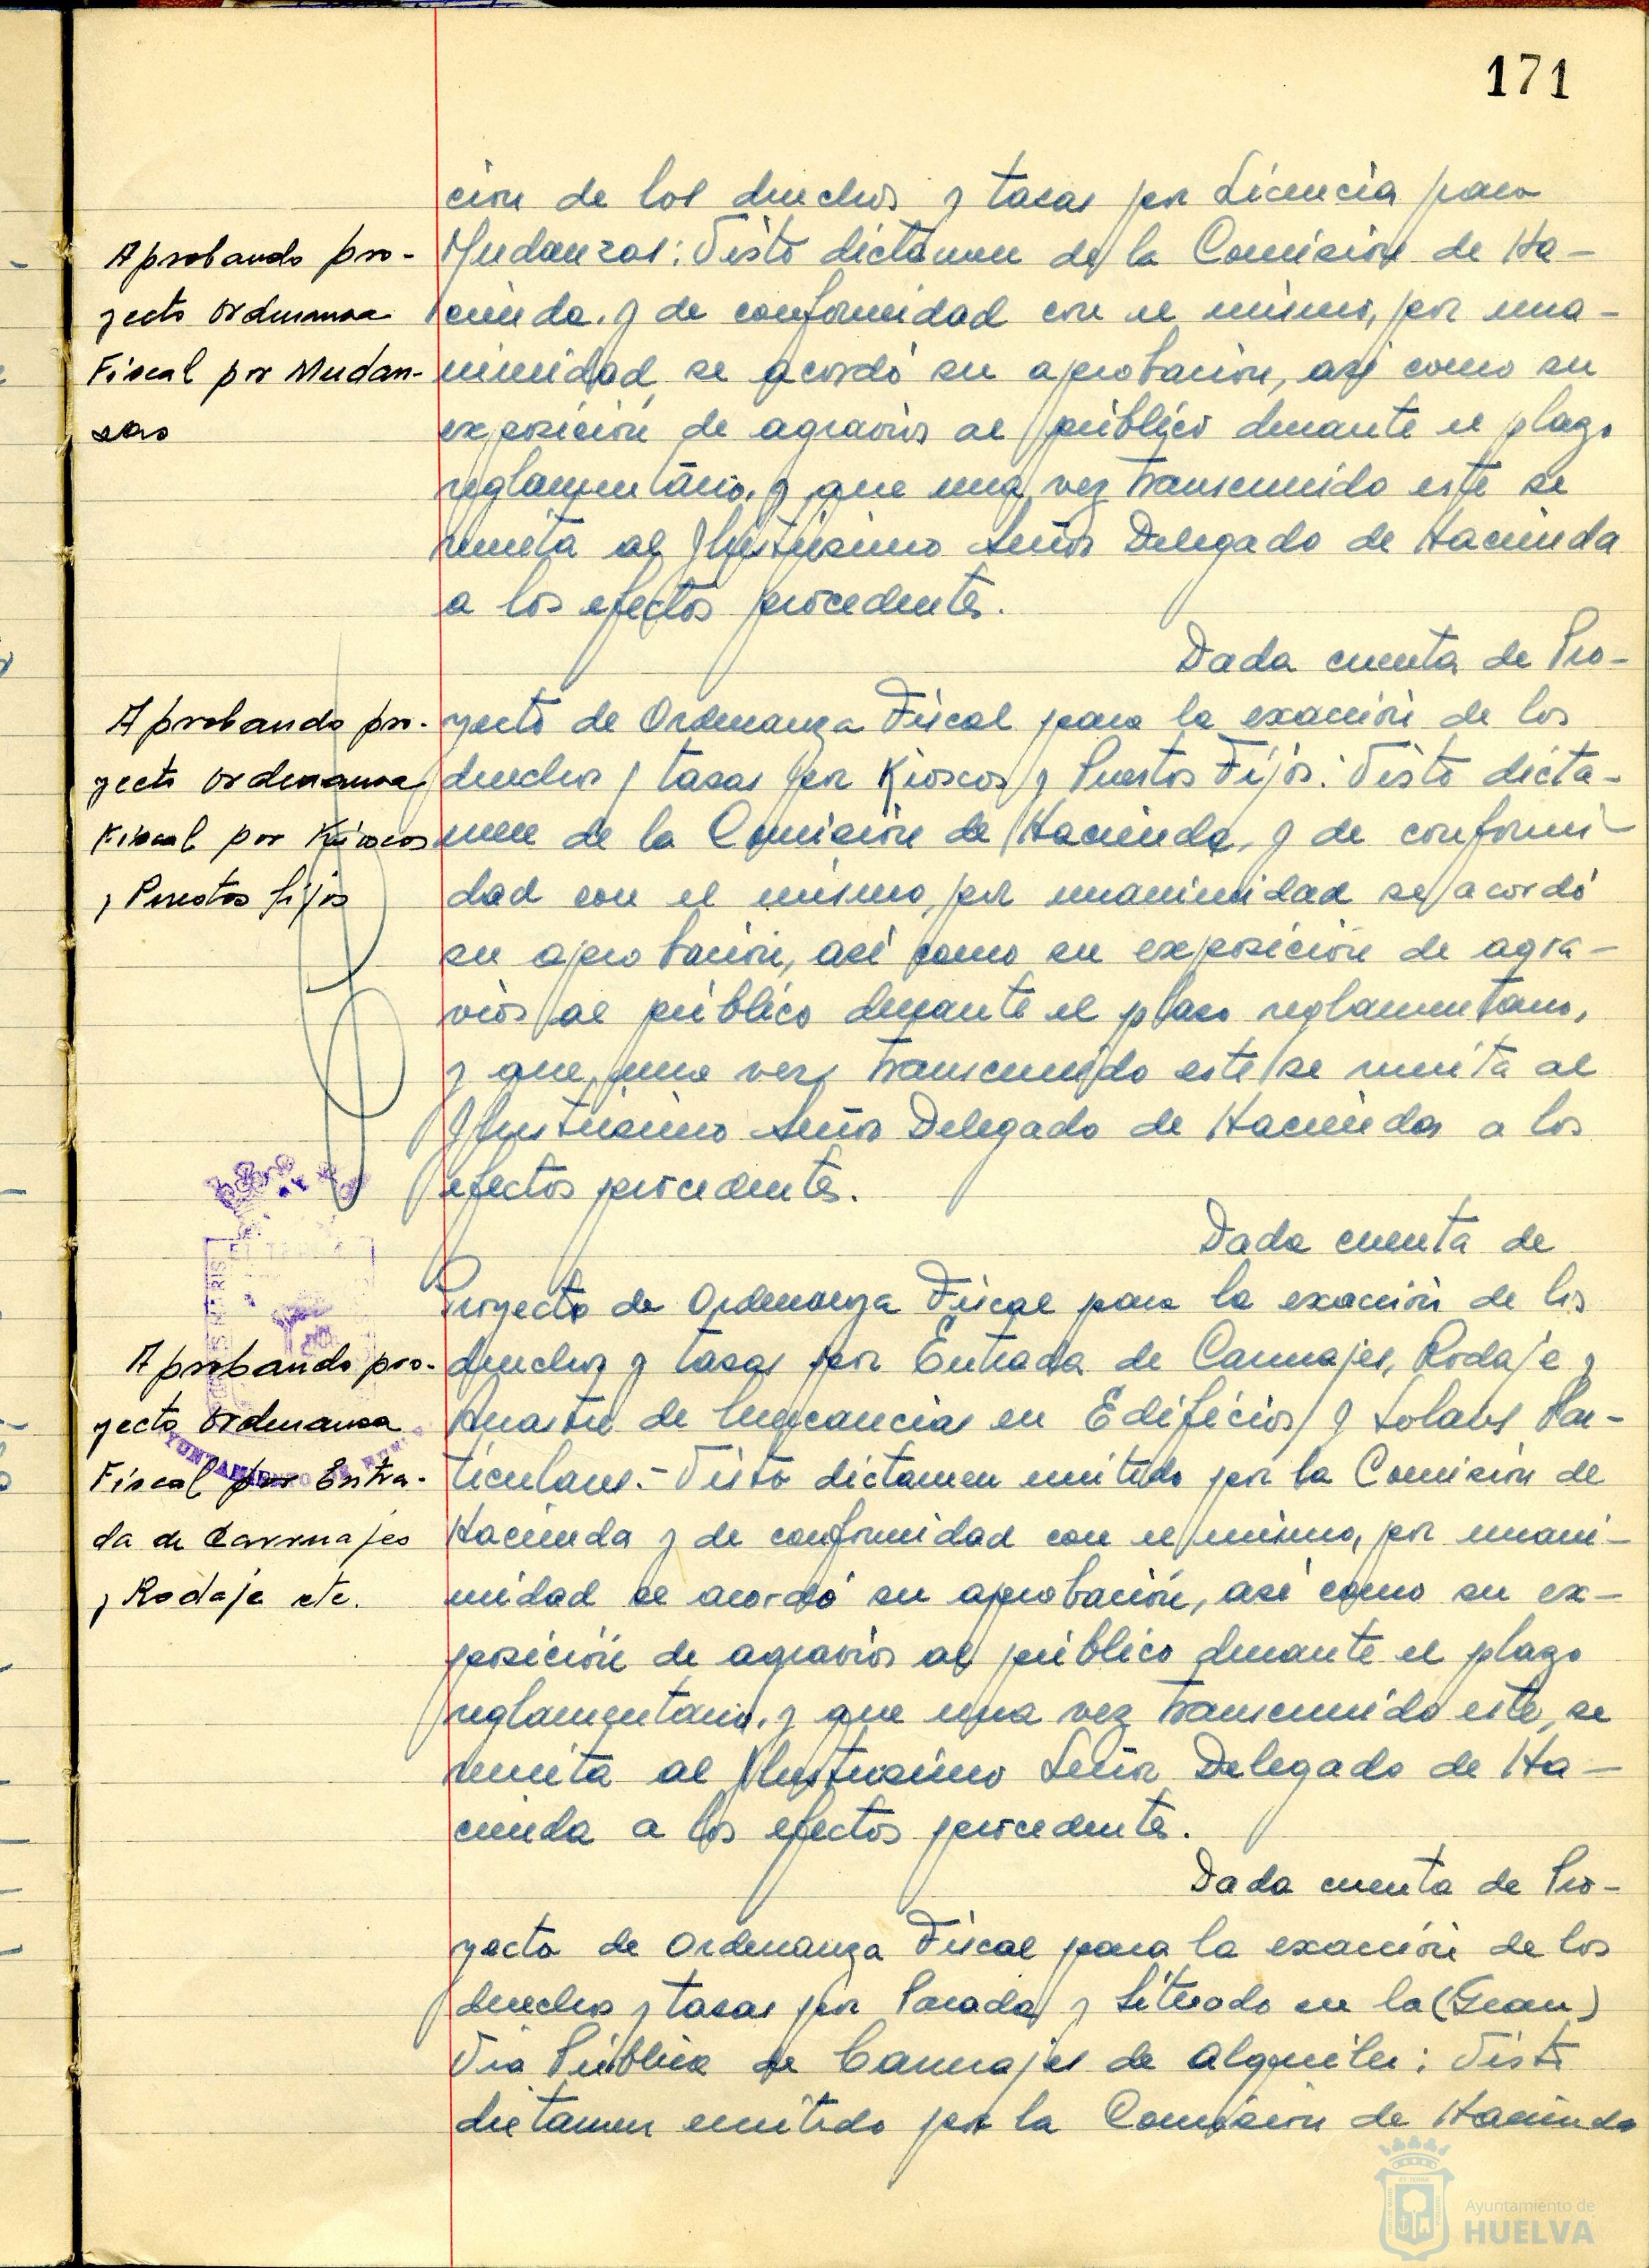 171
cion de los derechos y tasas por Licencia para
Aprobando pro-
yecto Ordenanza
Fiscal por Mudan-
zas
Mudanzas: Visto dictamen de la Comisión de Ha-
cienda, y de conformidad con el mismo, por una-
nimidad se acordó su aprobación, así como su
exposición de agravios al público durante el plazo
reglamentario, y que una vez transcurrido este se
remita al Ilustrisimo Señor Delegado de Hacienda
a los efectos procedentes.
Dada cuenta de Pro-
Aprobando pro-
yecto Ordenanza
Fiscal por Kioscos
y Puestos fijos
yecto de Ordenanza Fiscal para la exacción de los
derechos y tasas por Kioscos y Puestos Fijos: Visto dicta-
men de la Comisión de Hacienda, y de conformi-
dad con el mismo, por unanimidad se acordó
su aprobación, así como su exposición de agra-
vios al público durante el plazo reglamentario,
y que una vez transcurrido este se remita al
Ilustrisimo Señor Delegado de Hacienda a los
efectos procedentes.
Dada cuenta de
Proyecto de Ordenanza Fiscal para la exacción de los
Aprobando pro-
yecto Ordenanza
Fiscal por Entra-
da de Carruajes
y Rodaje etc.
derechos y tasas por Entrada de Carruajes, Rodaje y
Arrastre de Mercancias en Edificios y Solares Par-
ticulares.- Visto dictamen emitido por la Comisión de
Hacienda y de conformidad con el mismo, por unani-
midad se acordó su aprobación, así como su ex-
posición de agravios al público durante el plazo
reglamentario, y que una vez transcurrido este, se
remita al Ilustrisimo Señor Delegado de Ha-
cienda a los efectos procedentes.
Dada cuenta de Pro-
yecto de Ordenanza Fiscal para la exacción de los
derechos y tasas por Parada y Situado en la (Gran)
Via Pública de Carruajes de alquiler: Visto
dictamen emitido por la Comisión de Hacienda
AYUNTAMIENTO DE
Ayuntamiento de
HUELVA